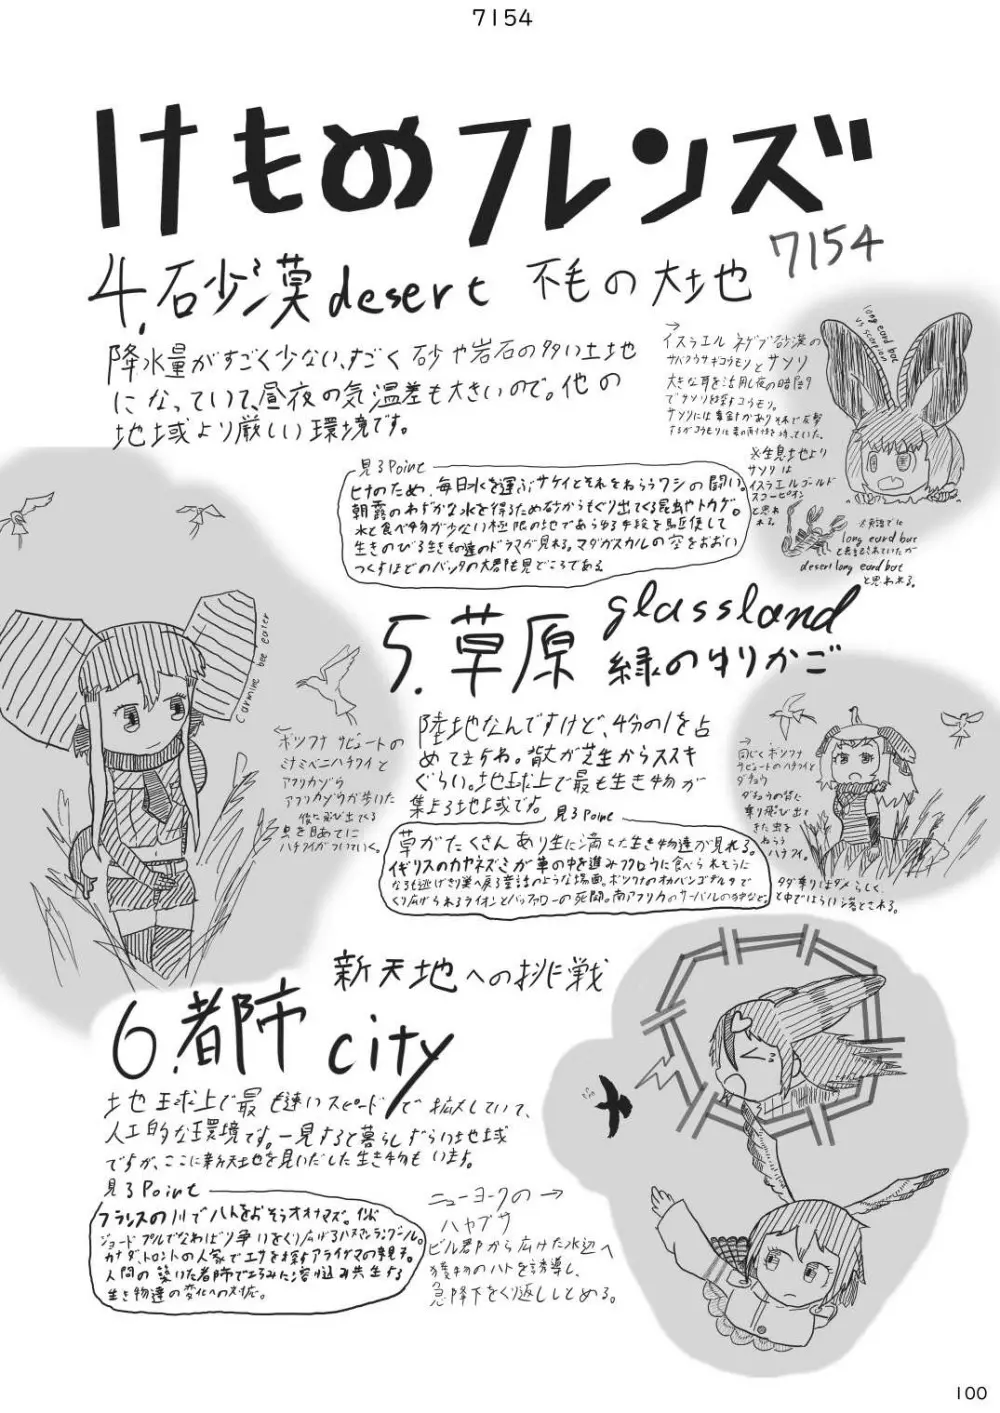 7154
けものフレンズ
7154
4.砂漠 desert 不毛の大地
降水量がすごく少ない、すごく砂や岩石の多い土地
になっていて、昼夜の気温差も大きいので。他の
地域より厳しい環境です。
見るPoint
ヒナのため、毎日水を運ぶサケイとそれをねらうワシの闘い。
朝露のわずかな水を得るため砂からもぐり出てくる昆虫やトカゲ。
水と食べ物が少ない極限の地であらゆる手段を駆使して
生きのびる生きもの達のドラマが見れる。マダガスカルの空をおおい
つくすほどのバッタの大群も見どころである
→
イスラエル ネゲブ砂漠の
サバクウサギコウモリとサソリ
大きな耳を活用し夜の暗闇
でサソリを探すコウモリ。
サソリには毒針がありそれで反撃
するがコウモリは毒の
long eard bat
vs scorpion
※生息地より
サソリは
イスラエルゴールド
スコーピオン
と思われる
long eard bat
desert long eard bat
と思われる。
5.草原 glassland
緑のゆりかご
陸地なんですけど、4分の1を占
めてますね。背丈が芝生からススキ
ぐらい。地球上で最も生き物が
集まる地域です。
見るPoint
草がたくさんあり生に満ちた生き物達が見れる。
イギリスのカヤネズミが草の中を進みフクロウに食べられそうに
なるも逃げきり巣へ戻る童話のような場面。ボツワナのオカバンゴデルタで
くり広げられるライオンとバッファローの死闘。南アフリカのサーバルの狩など。
carmine bee eater
←
ボツワナ サビュートの
ミナミベニハチクイと
アフリカゾウ
アフリカゾウが歩いた
後に飛び出てくる
虫を目あてに
ハチクイがついていく。
→
同じくボツワナ
サビュートのハチクイと
ダチョウ
ダチョウの背に
乗り飛び出て
きた虫を
ねらう
ハチクイ。
タダ乗りはダメらしく、
と中ではらい落とされる。
6.都市 city
新天地への挑戦
地球上で最も速いスピードで拡大していて、
人工的な環境です。一見すると暮らしずらい地域
ですが、ここに新天地を見いだした生き物もいます。
見るPoint
フランスの川でハトをおそうオオナマズ。インド
ジョードプルでなわばり争いをくり広げるハヌマンラングール。
カナダ、トロントの人家でエサを探すアライグマの母親子。
人間の築いた都市でたくみに溶け込み共生する
生き物達の変化への対応。
ニューヨークの→
ハヤブサ
ビル群から広けた水辺へ
獲物のハトを誘導し、
急降下をくり返ししとめる。
100